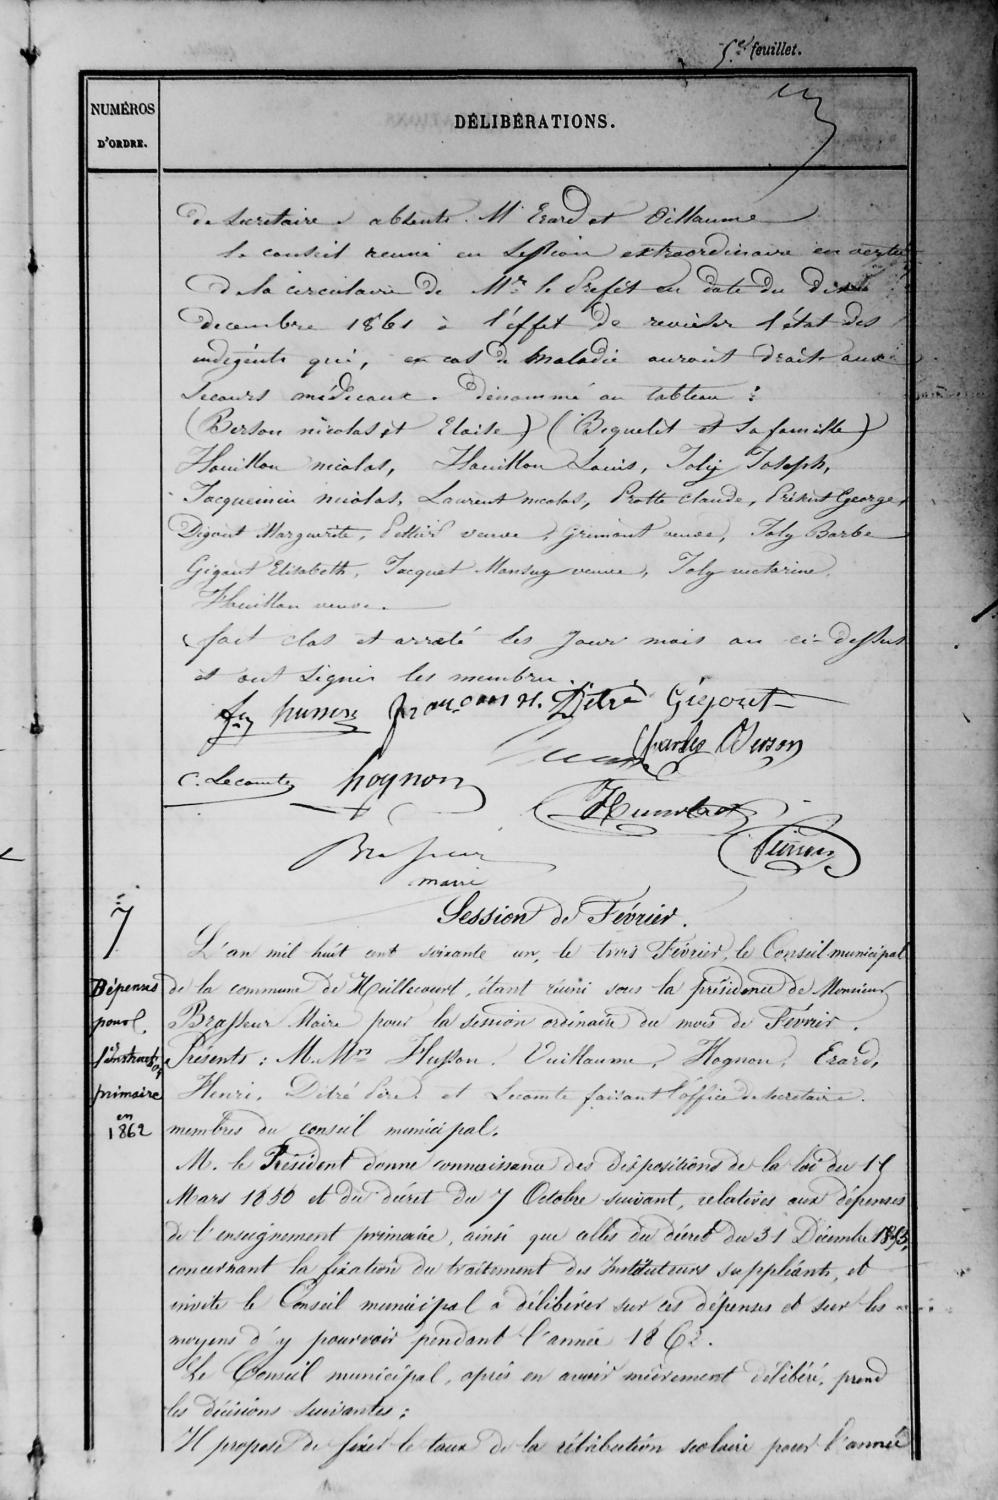 5.e feuillet.
NUMÉROS
D'ORDRE.
DÉLIBÉRATIONS.
de secretaire absents Mr Erard et Villaume
le conseil reuni en Session extraordinaire en vertu
De la circulaire de Mr le Prefet en date du
decembre 1861 à l'éffet De reviser l'état des
indigents qui, en cas de maladie auront droit aux
Secours médicaux. Dénommé au tableau :
(Berson nicolas et Eloise) (Biquelet et Sa famille)
Houillon nicolas, Houillon Louis, Joly Joseph,
Jacquemin nicolas, Laurent nicolas, Protte claude, George,
Digout Marguerite, veuve, Grimont veuve, Joly Barbe
Gigout Elisabeth, Jacquet Mansuy veuve, Joly victorine,
Houillon veuve.
fait clos et arreté les Jour mois an ci-dessus
et ont signer les membres.
françois H. Ditré Gigout
Charles Berson
C. Lecomte hognon
Humbert
Brasseur
maire
7
Session de Février.
L'an mil huit cent soixante un, le trois Février, le Conseil municipal
Dépenses
de la commune de Heillecourt, étant réuni sous la présidence de Monsieur
pour l.
Brasseur Maire pour la session ordinaire du mois de Février.
l'instruction
Présents : M.Mrs Husson, Vuillaume, Hognon, Erard,
primaire
Henri, Ditré Père et Lecomte faisant l'office de secretaire.
en
1862
membres du conseil municipal.
M. le Président donne connaissance des dispositions de la loi du 15
Mars 1850 et du décret du 7 Octobre suivant, relatives aux dépenses
de l'enseignement primaire, ainsi que celles du décret du 31 Décembre 1853,
concernant la fixation du traitement des Instituteurs suppléants, et
invite le Conseil municipal à délibérer sur ces dépenses et sur les
moyens d'y pourvoir pendant l'année 1862.
Le Conseil municipal, après en avoir mûrement délibéré, prend
les décisions suivantes :
Il propose de fixer le taux de la rétribution scolaire pour l'année